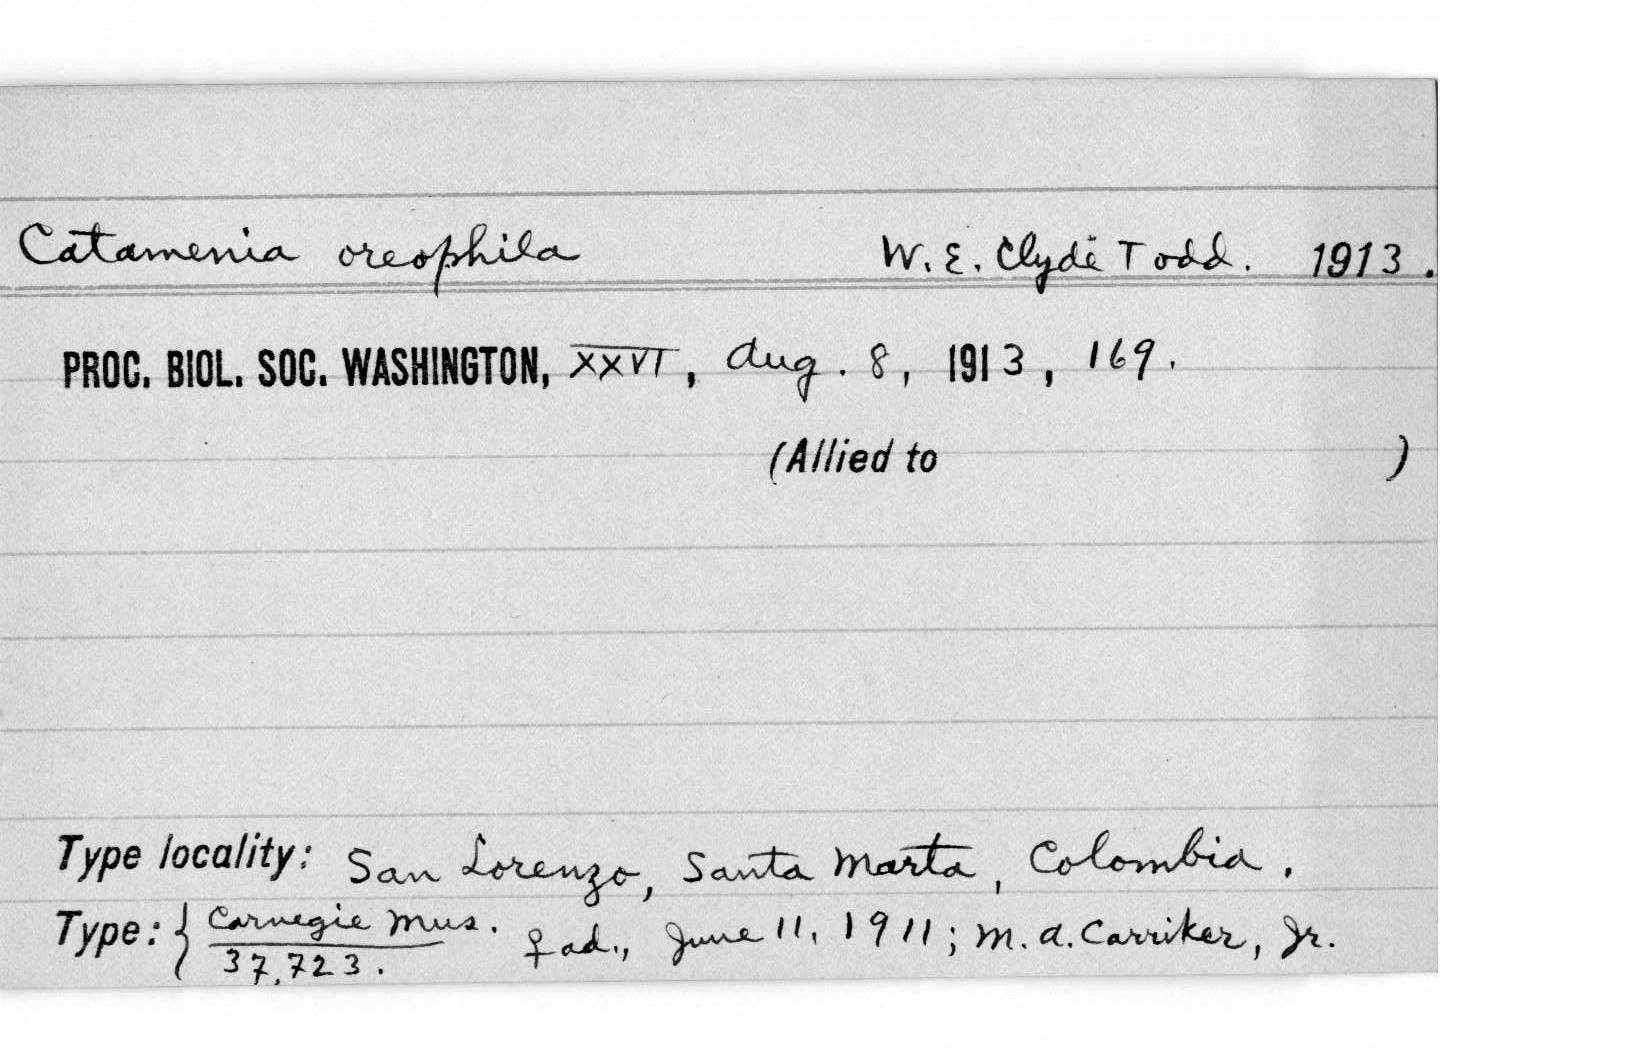 Catamenia oreophila W. E. Clyde Todd. 1913.
PROC. BIOL. SOC. WASHINGTON, XXVI, Aug. 8, 1913, 169.
(Allied to )
Type locality: San Lorenzo, Santa Marta, Colombia.
Type: { Carnegie Mus. ♀ ad., June 11, 1911; M. A. Carriker, Jr.
37,723.